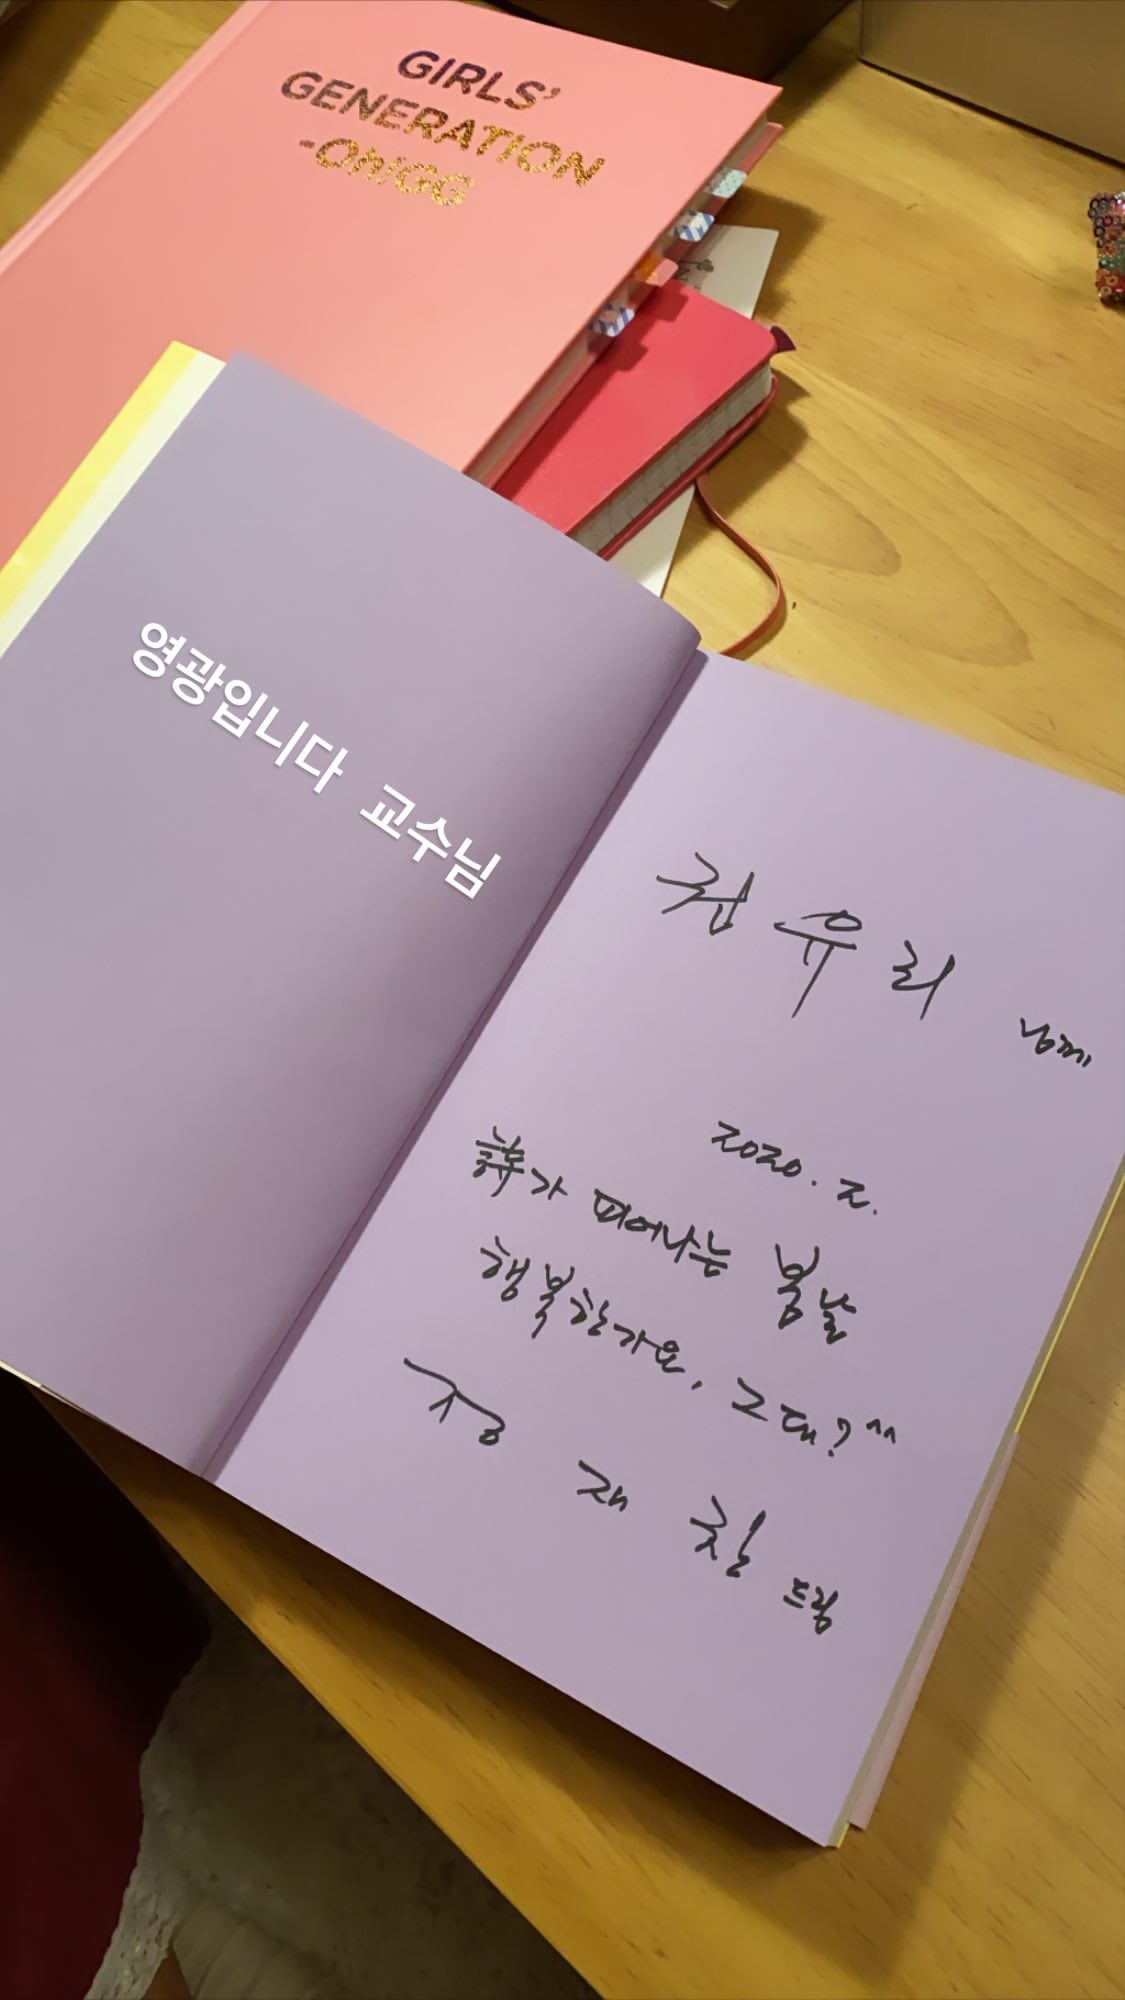 GIRLS'
GENERATION
-Oh!GG
영광입니다 교수님
권유리 님께
2020. 2.
詩가 피어나는 봄날
행복한가요, 그대? ^^
정재찬 드림